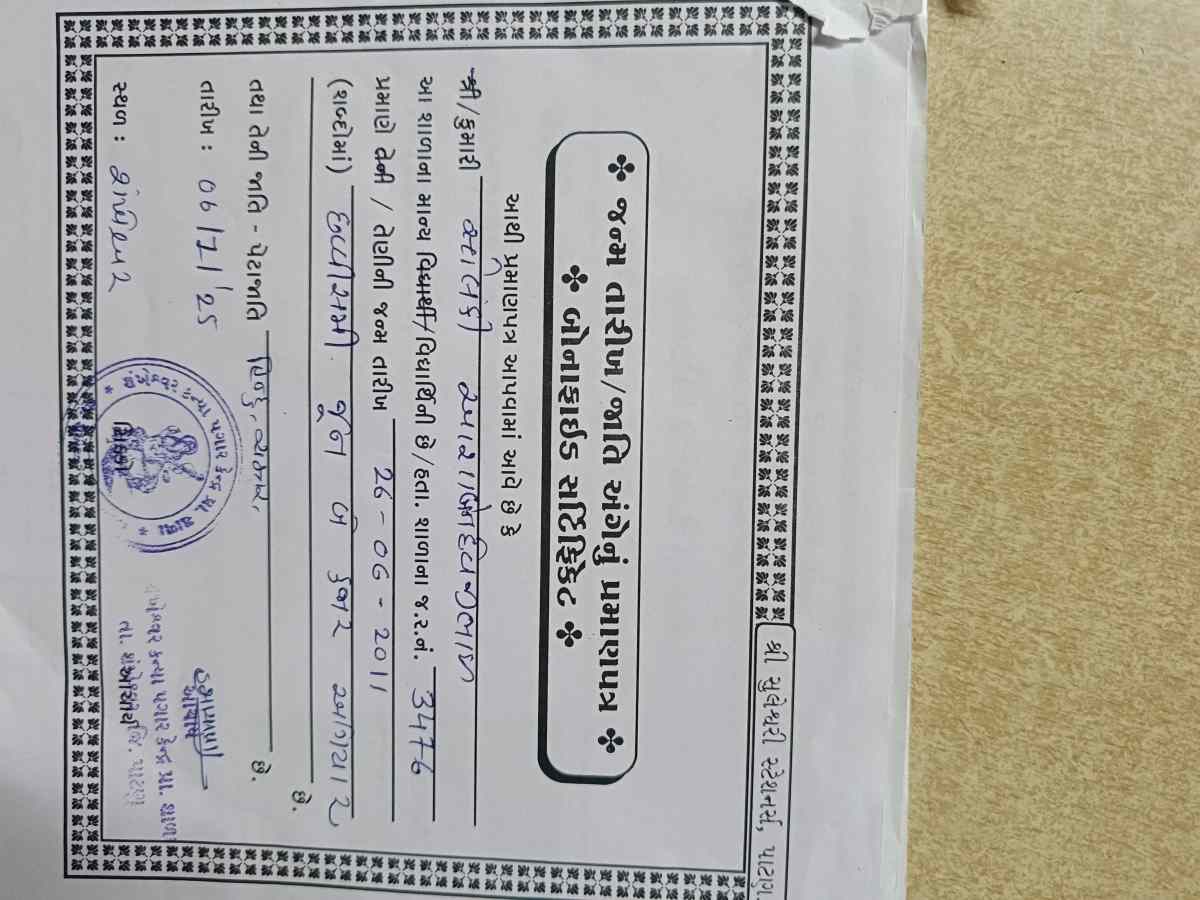 શ્રી સુબેશ્વરી સ્ટેશનર્સ, પાટણ.
❖ જન્મ તારીખ/જાતિ અંગેનું પ્રમાણપત્ર ❖
❖ બોનાફાઈડ સર્ટિફિકેટ ❖
આથી પ્રમાણપત્ર આપવામાં આવે છે કે
શ્રી/કુમારી સોલંકી
આ શાળાના માન્ય વિદ્યાર્થી/વિદ્યાર્થિની છે/હતા. શાળાના જ.ર.નં. 3476
પ્રમાણે તેની / તેણીની જન્મ તારીખ 26-06-2011
(શબ્દોમાં) છવ્વીસમી જૂન બે હજાર અગિયાર
છે.
તથા તેની જાતિ - પેટાજાતિ હિન્દુ, છે.
તારીખ : 06/7/25
સ્થળ : શંખેશ્વર
સિક્કો
આચાર્ય
કન્યા પગાર કેન્દ્ર પ્રા. શાળા
તા. શંખેશ્વર જિ. પાટણ